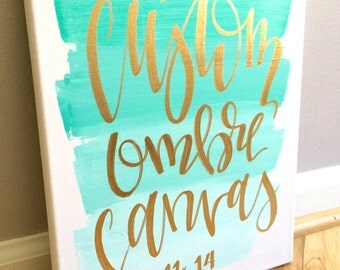 Custom
ombre
Canvas
11x14